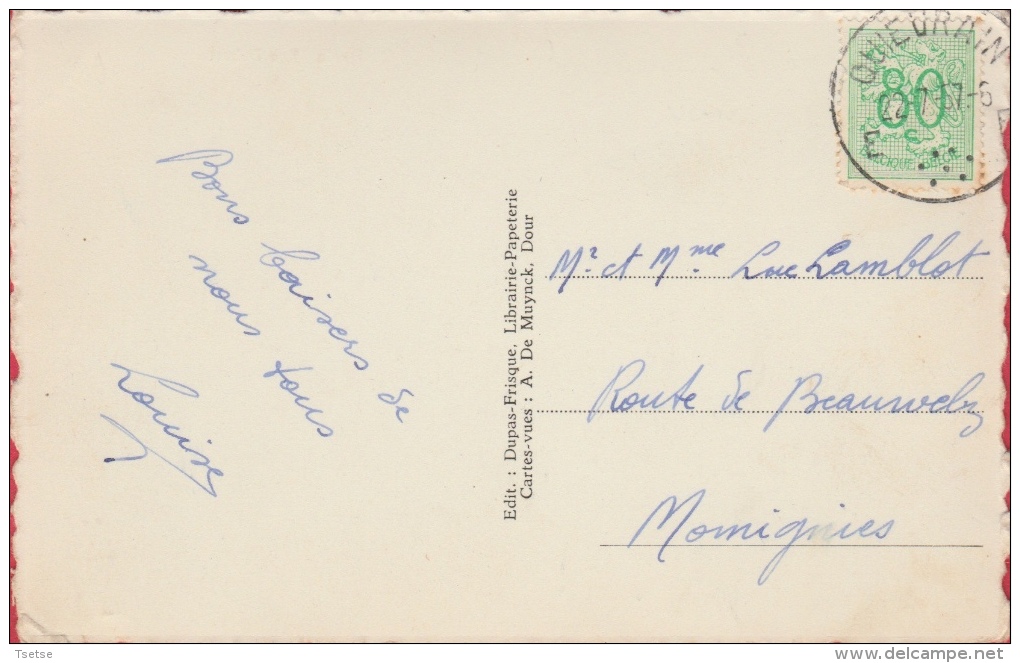 QUIEVRAIN
22-7 57-6
E
E
80
C
BELGIQUE-BELGIE
Bons baisers de
nous tous
Louise
Edit. : Dupas-Frisque, Librairie-Papeterie
Cartes-vues : A. De Muynck, Dour
Mr et Mme Luc Lamblot
Route de Beauwelz
Momignies
Tsetse
delcampe.net